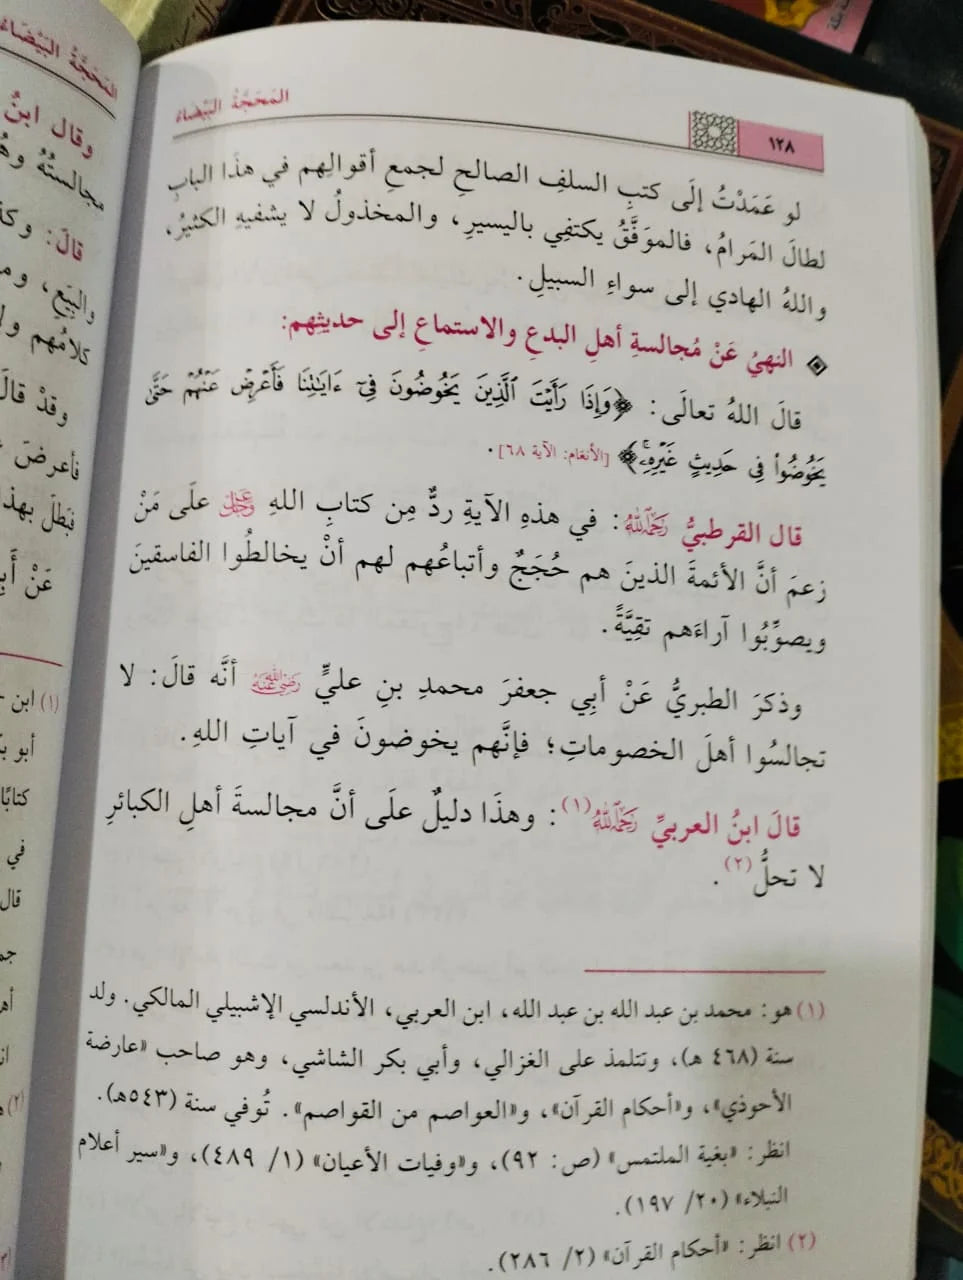 المَحَجَّةُ البَيْضَاءُ
١٢٨
لو عَمَدْتُ إلَى كتبِ السلفِ الصالحِ لجمعِ أقوالِهم في هذَا البابِ
لطالَ المَرامُ، فالموَفَّقُ يكتفِي باليسيرِ، والمخذولُ لا يشفيهِ الكثيرُ،
واللهُ الهادي إلى سواءِ السبيلِ.
النهيُ عَنْ مُجالسةِ أهلِ البدعِ والاستماعِ إلى حديثِهم:
قالَ اللهُ تعالَى: ﴿وَإِذَا رَأَيْتَ ٱلَّذِينَ يَخُوضُونَ فِىٓ ءَايَٰتِنَا فَأَعْرِضْ عَنْهُمْ حَتَّىٰ
يَخُوضُوا۟ فِى حَدِيثٍ غَيْرِهِۦ﴾ [الأنعَام: الآية ٦٨].
قال القرطبيُّ رَحِمَهُ ٱللَّهُ: في هذهِ الآيةِ ردٌّ مِن كتابِ اللهِ عَزَّوَجَلَّ علَى مَنْ
زعمَ أنَّ الأئمةَ الذينَ هم حُجَجٌ وأتباعُهم لهم أنْ يخالطُوا الفاسقينَ
ويصوِّبُوا آراءَهم تقِيَّةً.
وذكرَ الطبريُّ عَنْ أبِي جعفرَ محمدِ بنِ عليٍّ رَضِيَ اللَّهُ عَنْهُ أنَّه قالَ: لا
تجالسُوا أهلَ الخصوماتِ؛ فإنَّهم يخوضونَ في آياتِ اللهِ.
قالَ ابنُ العربيِّ رَحِمَهُ ٱللَّهُ(١): وهذَا دليلٌ علَى أنَّ مجالسةَ أهلِ الكبائرِ
لا تحلُّ(٢).
(١) هو: محمد بن عبد الله بن عبد الله، ابن العربي، الأندلسي الإشبيلي المالكي. ولد
سنة (٤٦٨ هـ)، وتتلمذ على الغزالي، وأبي بكر الشاشي، وهو صاحب «عارضة
الأحوذي»، و«أحكام القرآن»، و«العواصم من القواصم». تُوفي سنة (٥٤٣هـ).
انظر: «بغية الملتمس» (ص: ٩٢)، و«وفيات الأعيان» (١/ ٤٨٩)، و«سير أعلام
النبلاء» (٢٠/ ١٩٧).
(٢) انظر: «أحكام القرآن» (٢/ ٢٨٦).
المَحَجَّةُ البَيْضَاءُ
وقال ابنُ
مجالستُهُ
قالَ:
والبَيْعِ،
كلامُهم
وقدْ قالَ
فأعرضَ
فبَطَلَ بهذا
عَنْ
(١) ابن
كتابًا
في
قال
(٢)